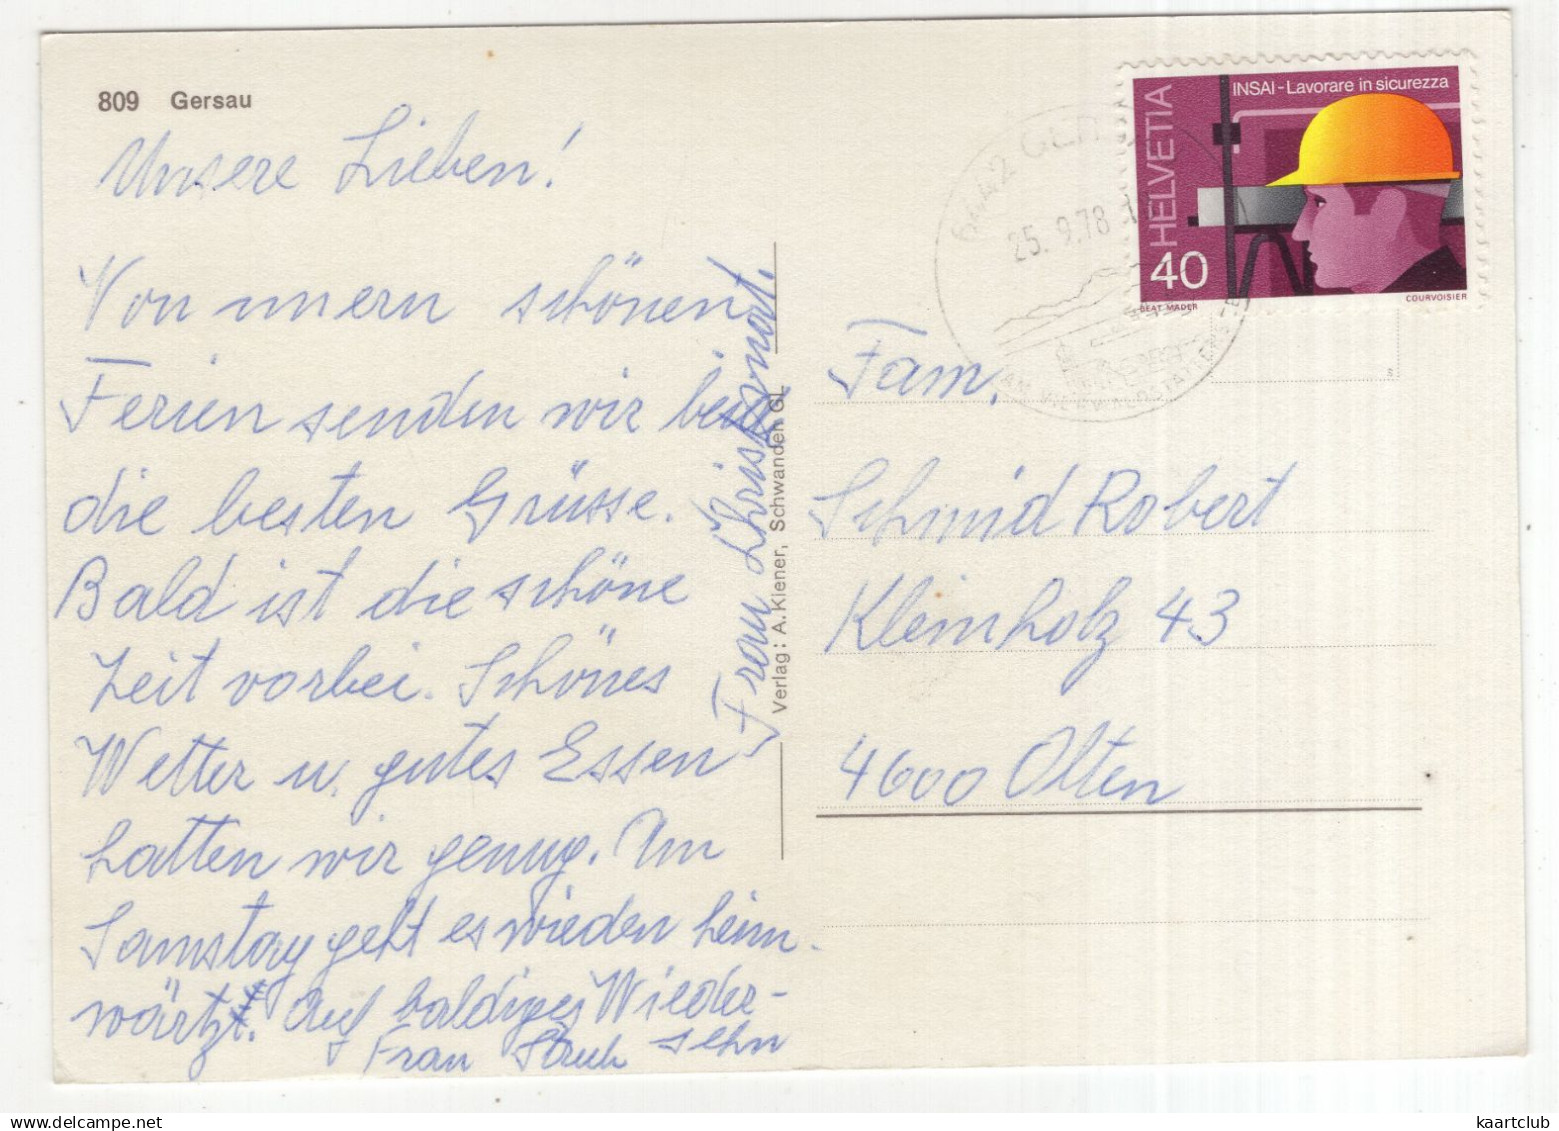 809 Gersau
Unsere Lieben!
Von unern schönen
Ferien senden wir beide
die besten Grüsse.
Bald ist die schöne
Zeit vorbei. Schönes
Wetter u. gutes Essen
hatten wir genug. Am
Samstag geht es wieder heim-
wärtz. Auf baldiges Wieder-
sehn
Frau
Frau Christ
Verlag: A. Kiener, Schwanden GL
6442 GER
25. 9.78
AM VIERWALDSTÄTTERSEE
HELVETIA
INSAI - Lavorare in sicurezza
40
BEAT MÄDER
COURVOISIER
Fam.
Schmid Robert
Kleinholz 43
4600 Olten
kaartclub